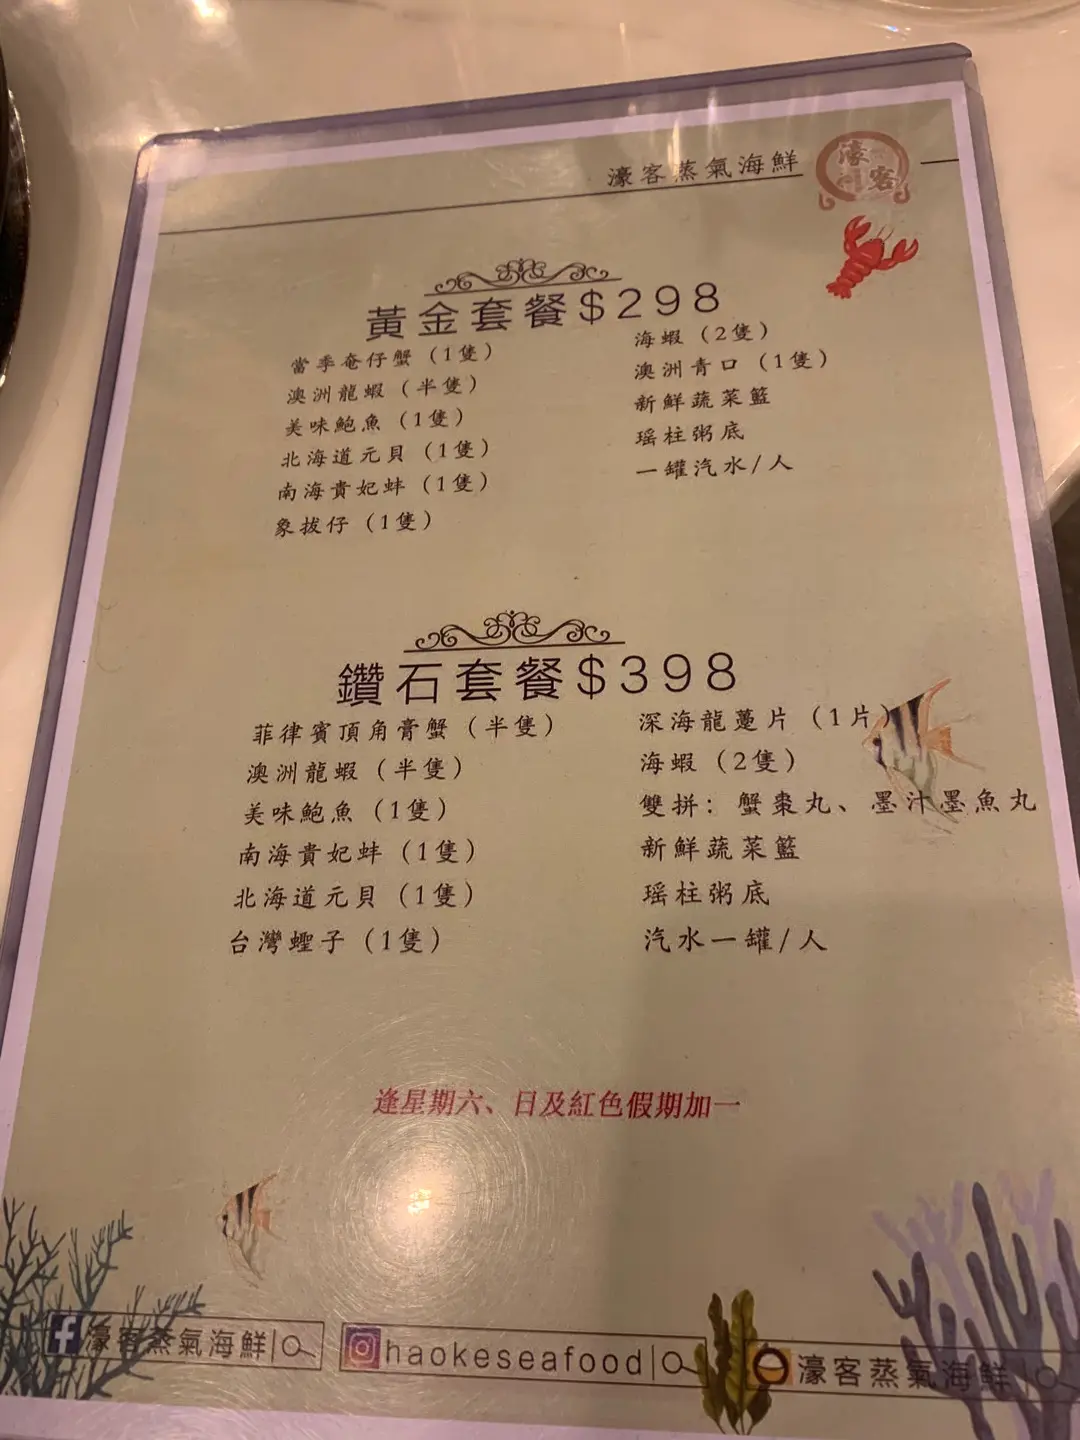 濠客蒸氣海鮮
濠客
黃金套餐$298
當季奄仔蟹（1隻）
澳洲龍蝦（半隻）
美味鮑魚（1隻）
北海道元貝（1隻）
南海貴妃蚌（1隻）
象拔仔（1隻）
海蝦（2隻）
澳洲青口（1隻）
新鮮蔬菜籃
瑶柱粥底
一罐汽水/人
鑽石套餐$398
菲律賓頂角膏蟹（半隻）
澳洲龍蝦（半隻）
美味鮑魚（1隻）
南海貴妃蚌（1隻）
北海道元貝（1隻）
台灣蟶子（1隻）
深海龍躉片（1片）
海蝦（2隻）
雙拼：蟹棗丸、墨汁墨魚丸
新鮮蔬菜籃
瑶柱粥底
汽水一罐/人
逢星期六、日及紅色假期加一
濠客蒸氣海鮮
haokeseafood
濠客蒸氣海鮮